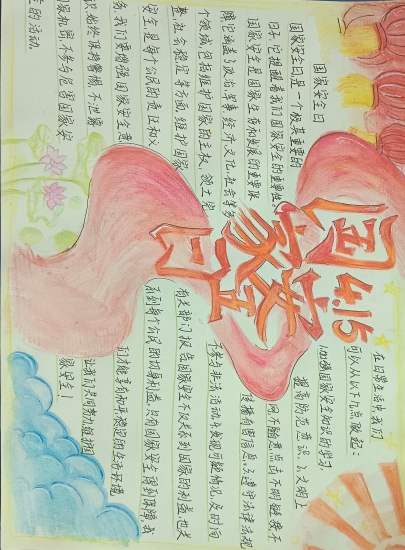 国家安全日
4.15
国家安全日
国家安全日是一个极其重要的
日子,它提醒着我们国家安全的重要性。
国家安全是国家生存和发展的重要保
障,它涵盖了政治,军事,经济,文化,社会等多
个领域,包括维护国家的主权,领土完
整,社会稳定等方面,维护国家
安全,是每个公民的责任和义
务,我们要增强国家安全意
识,始终保持警惕,不泄露
国家机密,不参与危害国家安
全的活动。
在日常生活中,我们
可以从以下几点做起:
1.加强国家安全知识的学习,
提高防范意识。2.文明上
网不随意点击不明链接不
传播有害信息。3.遵守法律法规
不参与非法活动。4.发现可疑情况,及时向
有关部门报告国家安全不仅关系到国家的利益,也关
系到每个公民的切身利益,只有国家安全得到保障,我
们才能享有和平,稳定的生活环境
让我们共同努力维护国
家安全!